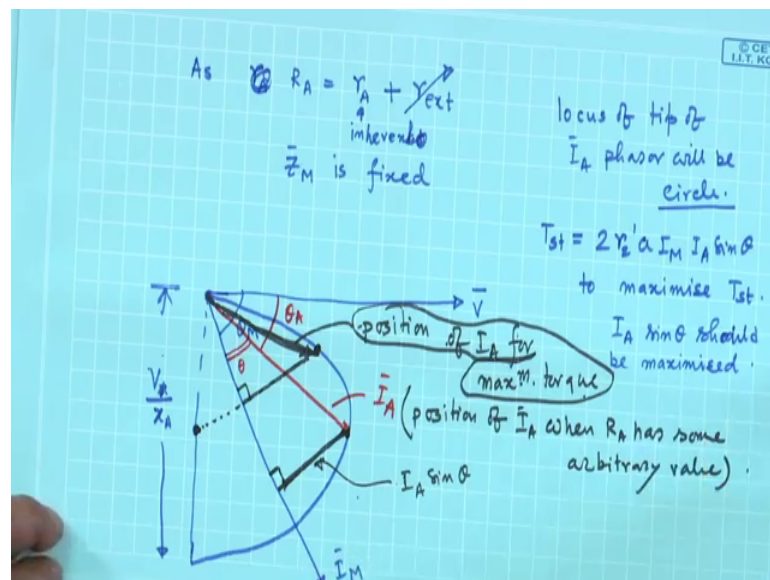 © CET
I.I.T. KG
As R_A = r_A + r_ext
inherent
Z̄_M is fixed
locus of tip of
Ī_A phasor will be
circle.
T_st = 2 r_2' a I_M I_A sin θ
to maximise T_st.
I_A sin θ should
be maximised.
V̄
θ_A
θ_M
θ
position of I_A for
max^m. torque
V
x_A
Ī_A (position of Ī_A when R_A has some
arbitrary value).
I_A sin θ
Ī_M